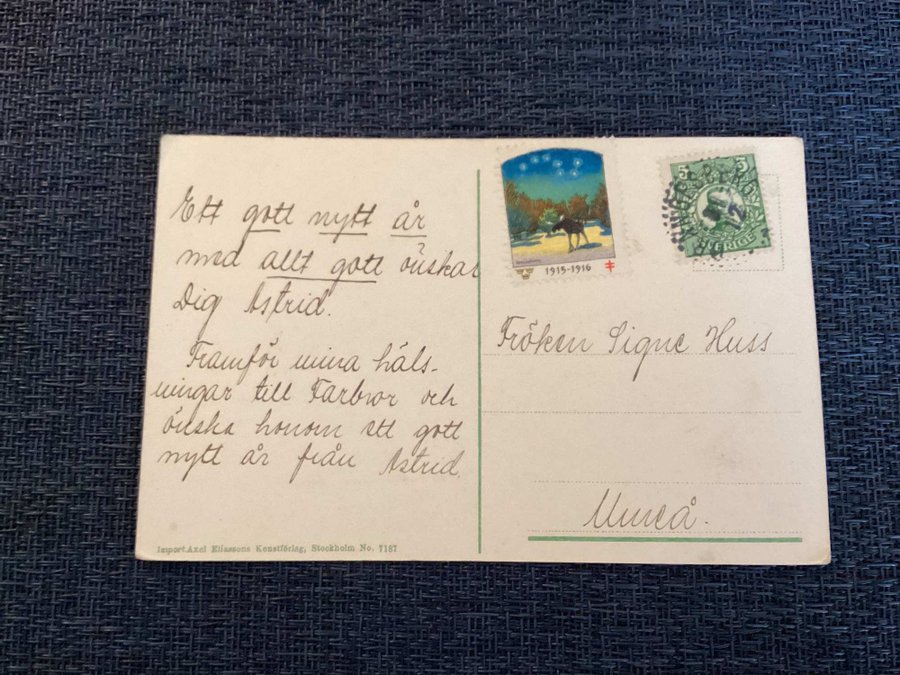 Ett gott nytt år
med allt gott önskar
Dig Astrid.
Framför mina häls-
ningar till Farbror och
önska honom ett gott
nytt år från Astrid.
Import. Axel Eliassons Konstförlag, Stockholm No. 7187
1915-1916
5 5
SVERIGE
Fröken Signe Huss
Umeå.